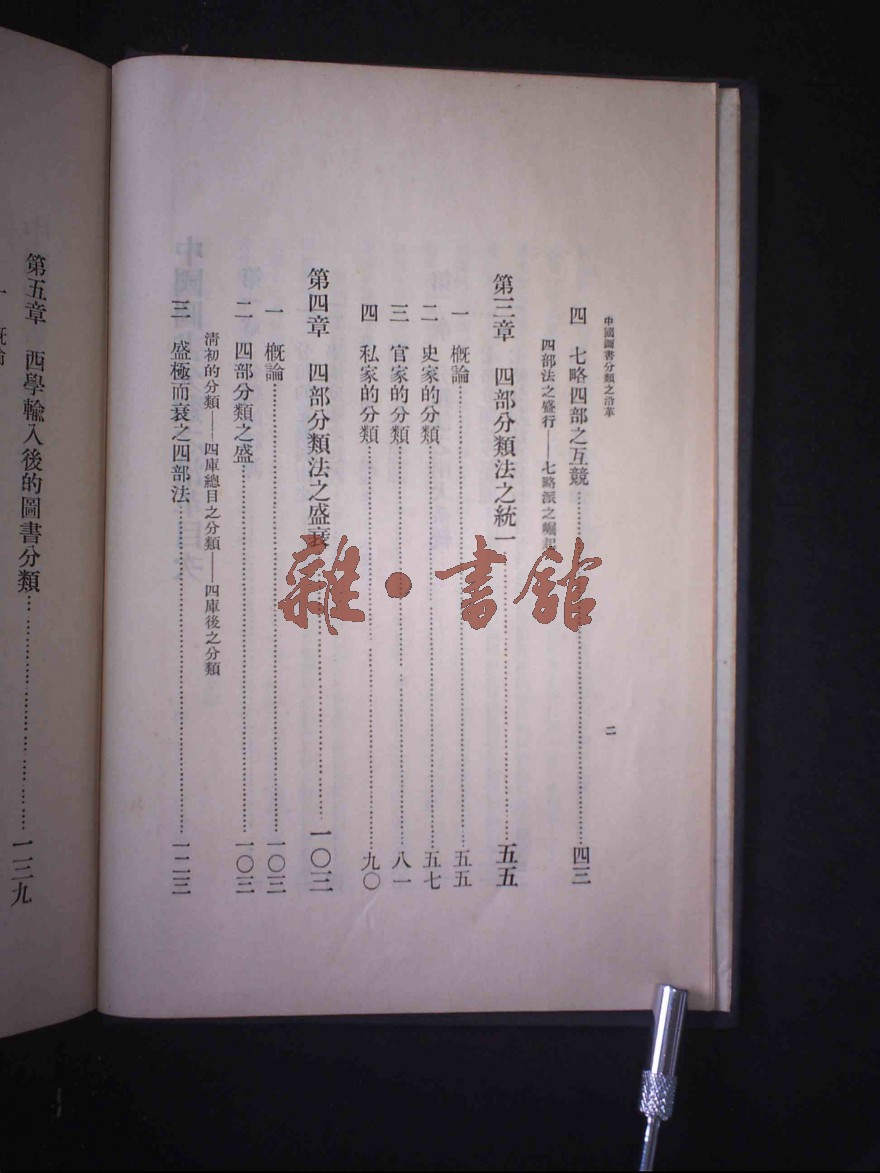 中國圖書分類之沿革
二
四　七略四部之互競……四三
四部法之盛行——七略派之崛起
第三章　四部分類法之統一……五五
一　概論……五五
二　史家的分類……五七
三　官家的分類……八一
四　私家的分類……九〇
第四章　四部分類法之盛衰……一〇三
一　概論……一〇三
二　四部分類之盛……一〇三
清初的分類——四庫總目之分類——四庫後之分類
三　盛極而衰之四部法……一二三
第五章　西學輸入後的圖書分類……一三九
一　概論
雜・書館